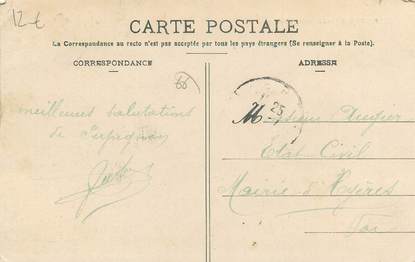 12 €
CARTE POSTALE
La Correspondance au recto n'est pas acceptée par tous les pays étrangers (Se renseigner à la Poste).
CORRESPONDANCE
ADRESSE
66
25
meilleures salutations
de Perpignan
Monsieur Augier
Etat Civil
Mairie d'Hyères
Var